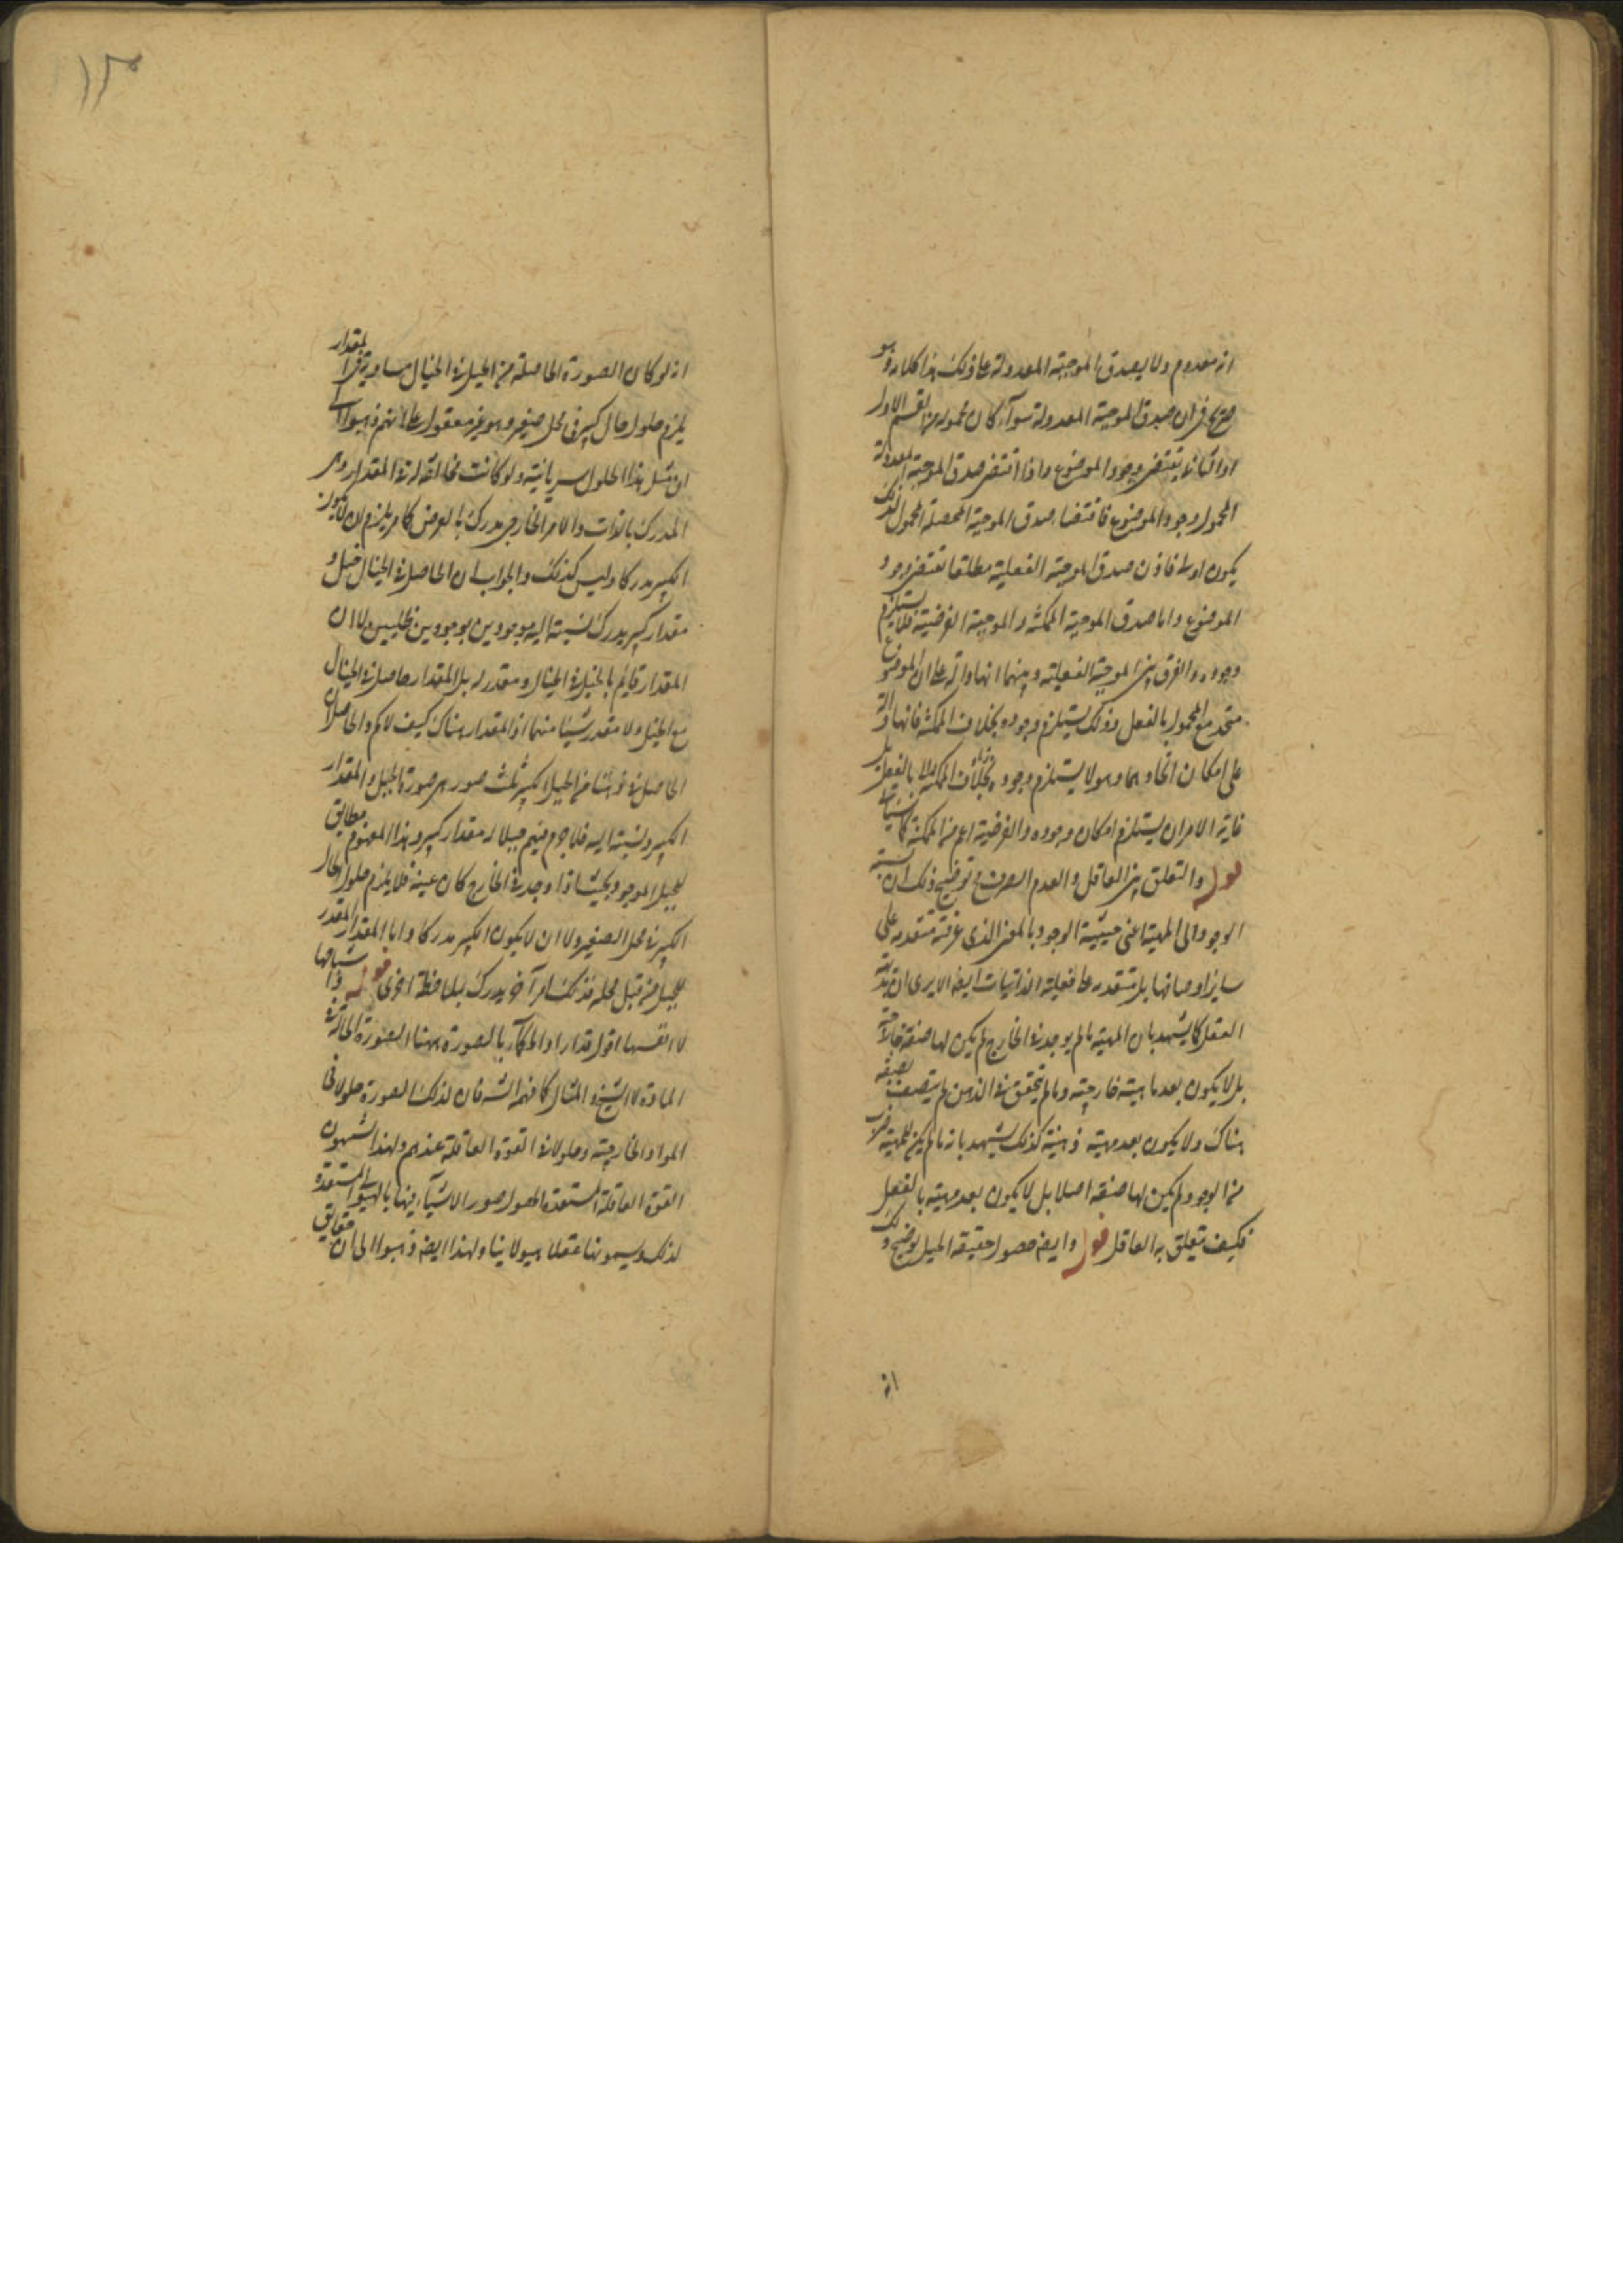 انه معدوم ولا يصدق الموجبة المعدولة على ذلك هذا كلامه وهو
صريح في ان صدق الموجبة المعدولة سواء كان محموله من القسم الاول
او الثاني يقتضى وجود الموضوع واذا اقتضى صدق الموجبة المعدولة
المحمول وجود الموضوع فاقتضاء صدق الموجبة المحصلة المحمول لذلك
يكون اولى فاذن صدق الموجبة الفعلية مطلقا تقتضى وجود
الموضوع واما صدق الموجبة الممكنة والموجبة الفرضية فلا يستلزم
وجوده والفرق بين الموجبة الفعلية وبينهما انها دالة على ان الموضوع
متحد مع المحمول بالفعل وذلك يستلزم وجوده بخلاف الممكنة فانها دالة
على امكان اتحادهما وهو لا يستلزم وجوده بالفعل بل
غاية الامر ان يستلزم امكان وجوده والفرضية اعم من الممكنة كما
قوله والتعلق بين العاقل والعدم الصرف توضيح ذلك ان نسبة
الوجود الى المهية اعنى حيثية الوجود بالمعنى الذى عرفته متقدمة على
سائر اوصافها بل متقدمة على فعلية الذاتيات ايضا الا يرى ان
العقل كما يشهد بان المهية ما لم يوجد في الخارج لم يكن لها صفة خارجية
بل لا يكون بعد ماهية خارجية وما لم يتحقق في الذهن لم يتصف بصفة
هناك ولا يكون بعد مهية ذهنية كذلك يشهد بانه ما لم يكن للمهية ضرب
من الوجود لم يكن لها صفة اصلا بل لا يكون بعد مهية بالفعل
فكيف يتعلق به العاقل قوله وايضا حصول حقيقة الجبل توضيح ذلك
انه
١٣
انه لو كان الصورة الحاصلة من الجبل في الخيال مساوية في المقدار
يلزم حلول حال كبير في محل صغير وهو غير معقول على انهم ذهبوا الى
ان مثل هذا الحلول سريانية ولو كانت مخالفة له في المقدار وهى
المدرك بالذات والامر الخارجى مدرك بالعرض كما مر يلزم ان لا يكون
الكبير مدركا وليس كذلك والجواب ان الحاصل في الخيال جبل و
مقدار كبير يدرك نسبته اليه موجودين بوجودين ظليين لا ان
المقدار قائم بالجبل في الخيال ومقدر له بل المقدار حاصل في الخيال
مع الجبل ولا مقدر شيئا منهما اذ المقدار هناك كيف لا كم والحاصل ان
الحاصل في ذهننا من الجبل الكبير ثلث صور هى صورة الجبل والمقدار
الكبير ونسبته اليه فلا جرم فيهم جبلا له مقدار كبير وهذا المفهوم مطابق
للجبل الموجود بحيث اذا وجد في الخارج كان عينه فلا يلزم حلول الحال
الكبير في محل الصغير ولا ان لا يكون الكبير مدركا واما المقدار المقدر
للجبل من قبل محله فذلك امر آخر يدرك بملاحظة اخرى قوله واشباحها
لا انفسها اقول قد اراد الحكماء بالصورة ههنا الصورة الحالة في
المادة لا الشبح والمثال كما فهم الشه فان لذلك الصورة حلولا في
المواد الخارجية وحلولا في القوة العاقلة عندهم ولهذا يشبهون
القوة العاقلة المستعدة لحصول صور الاشياء فيها بالهيولى المستعدة
لذلك ويسمونها عقلا هيولانيا ولهذا ايضا ذهبوا الى ان حقايق